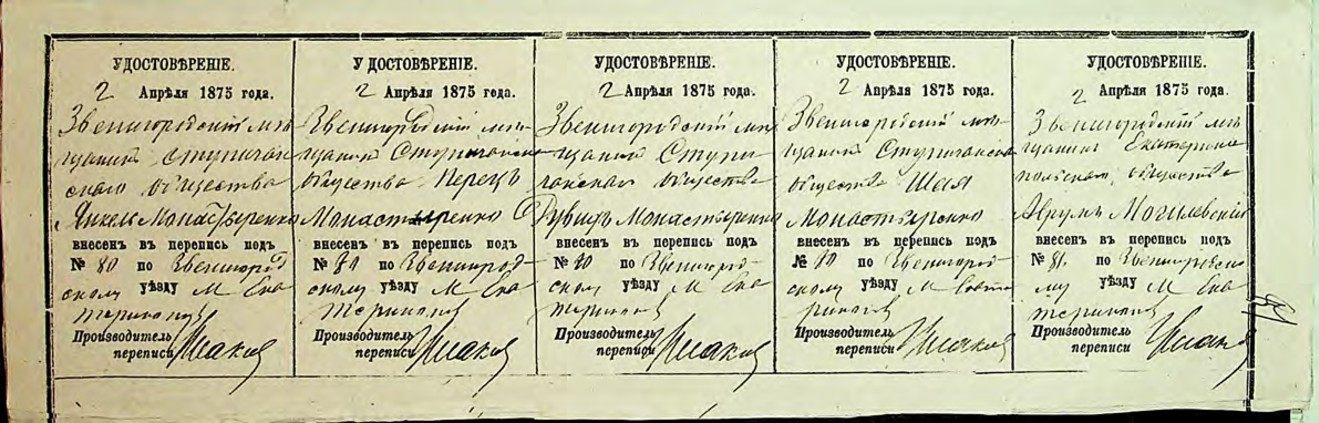 УДОСТОВѢРЕНІЕ.
2 Апрѣля 1875 года.
Звенигородскій мѣ
щанинъ Ступичан
скаго общества
Янкель Монастыренко
внесенъ въ перепись подъ
№ 80 по Звенигород
скому уѣзду М Ека
теринополь
Производитель
переписи
УДОСТОВѢРЕНІЕ.
2 Апрѣля 1875 года.
Звенигородскій мѣ
щанинъ Ступичанска
общества Перецъ
Монастыренко
внесенъ въ перепись подъ
№ 80 по Звенигород
скому уѣзду М Ека
теринополь
Производитель
переписи
УДОСТОВѢРЕНІЕ.
2 Апрѣля 1875 года.
Звенигородскій мѣ
щанинъ Ступи
чанскаго общества
Дувидъ Монастыренко
внесенъ въ перепись подъ
№ 80 по Звенигород
скому уѣзду М Ека
теринополь
Производитель
переписи
УДОСТОВѢРЕНІЕ.
2 Апрѣля 1875 года.
Звенигородскій мѣ
щанинъ Ступичанска
общества Шая
Монастыренко
внесенъ въ перепись подъ
№ 80 по Звенигород
скому уѣзду М
Производитель
переписи
УДОСТОВѢРЕНІЕ.
2 Апрѣля 1875 года.
Звенигородскій мѣ
щанинъ Екатерино
польскаго общества
Аврумъ Могилевскій
внесенъ въ перепись подъ
№ 81. по Звенигородско
му уѣзду М Ека
теринополь
Производитель
переписи